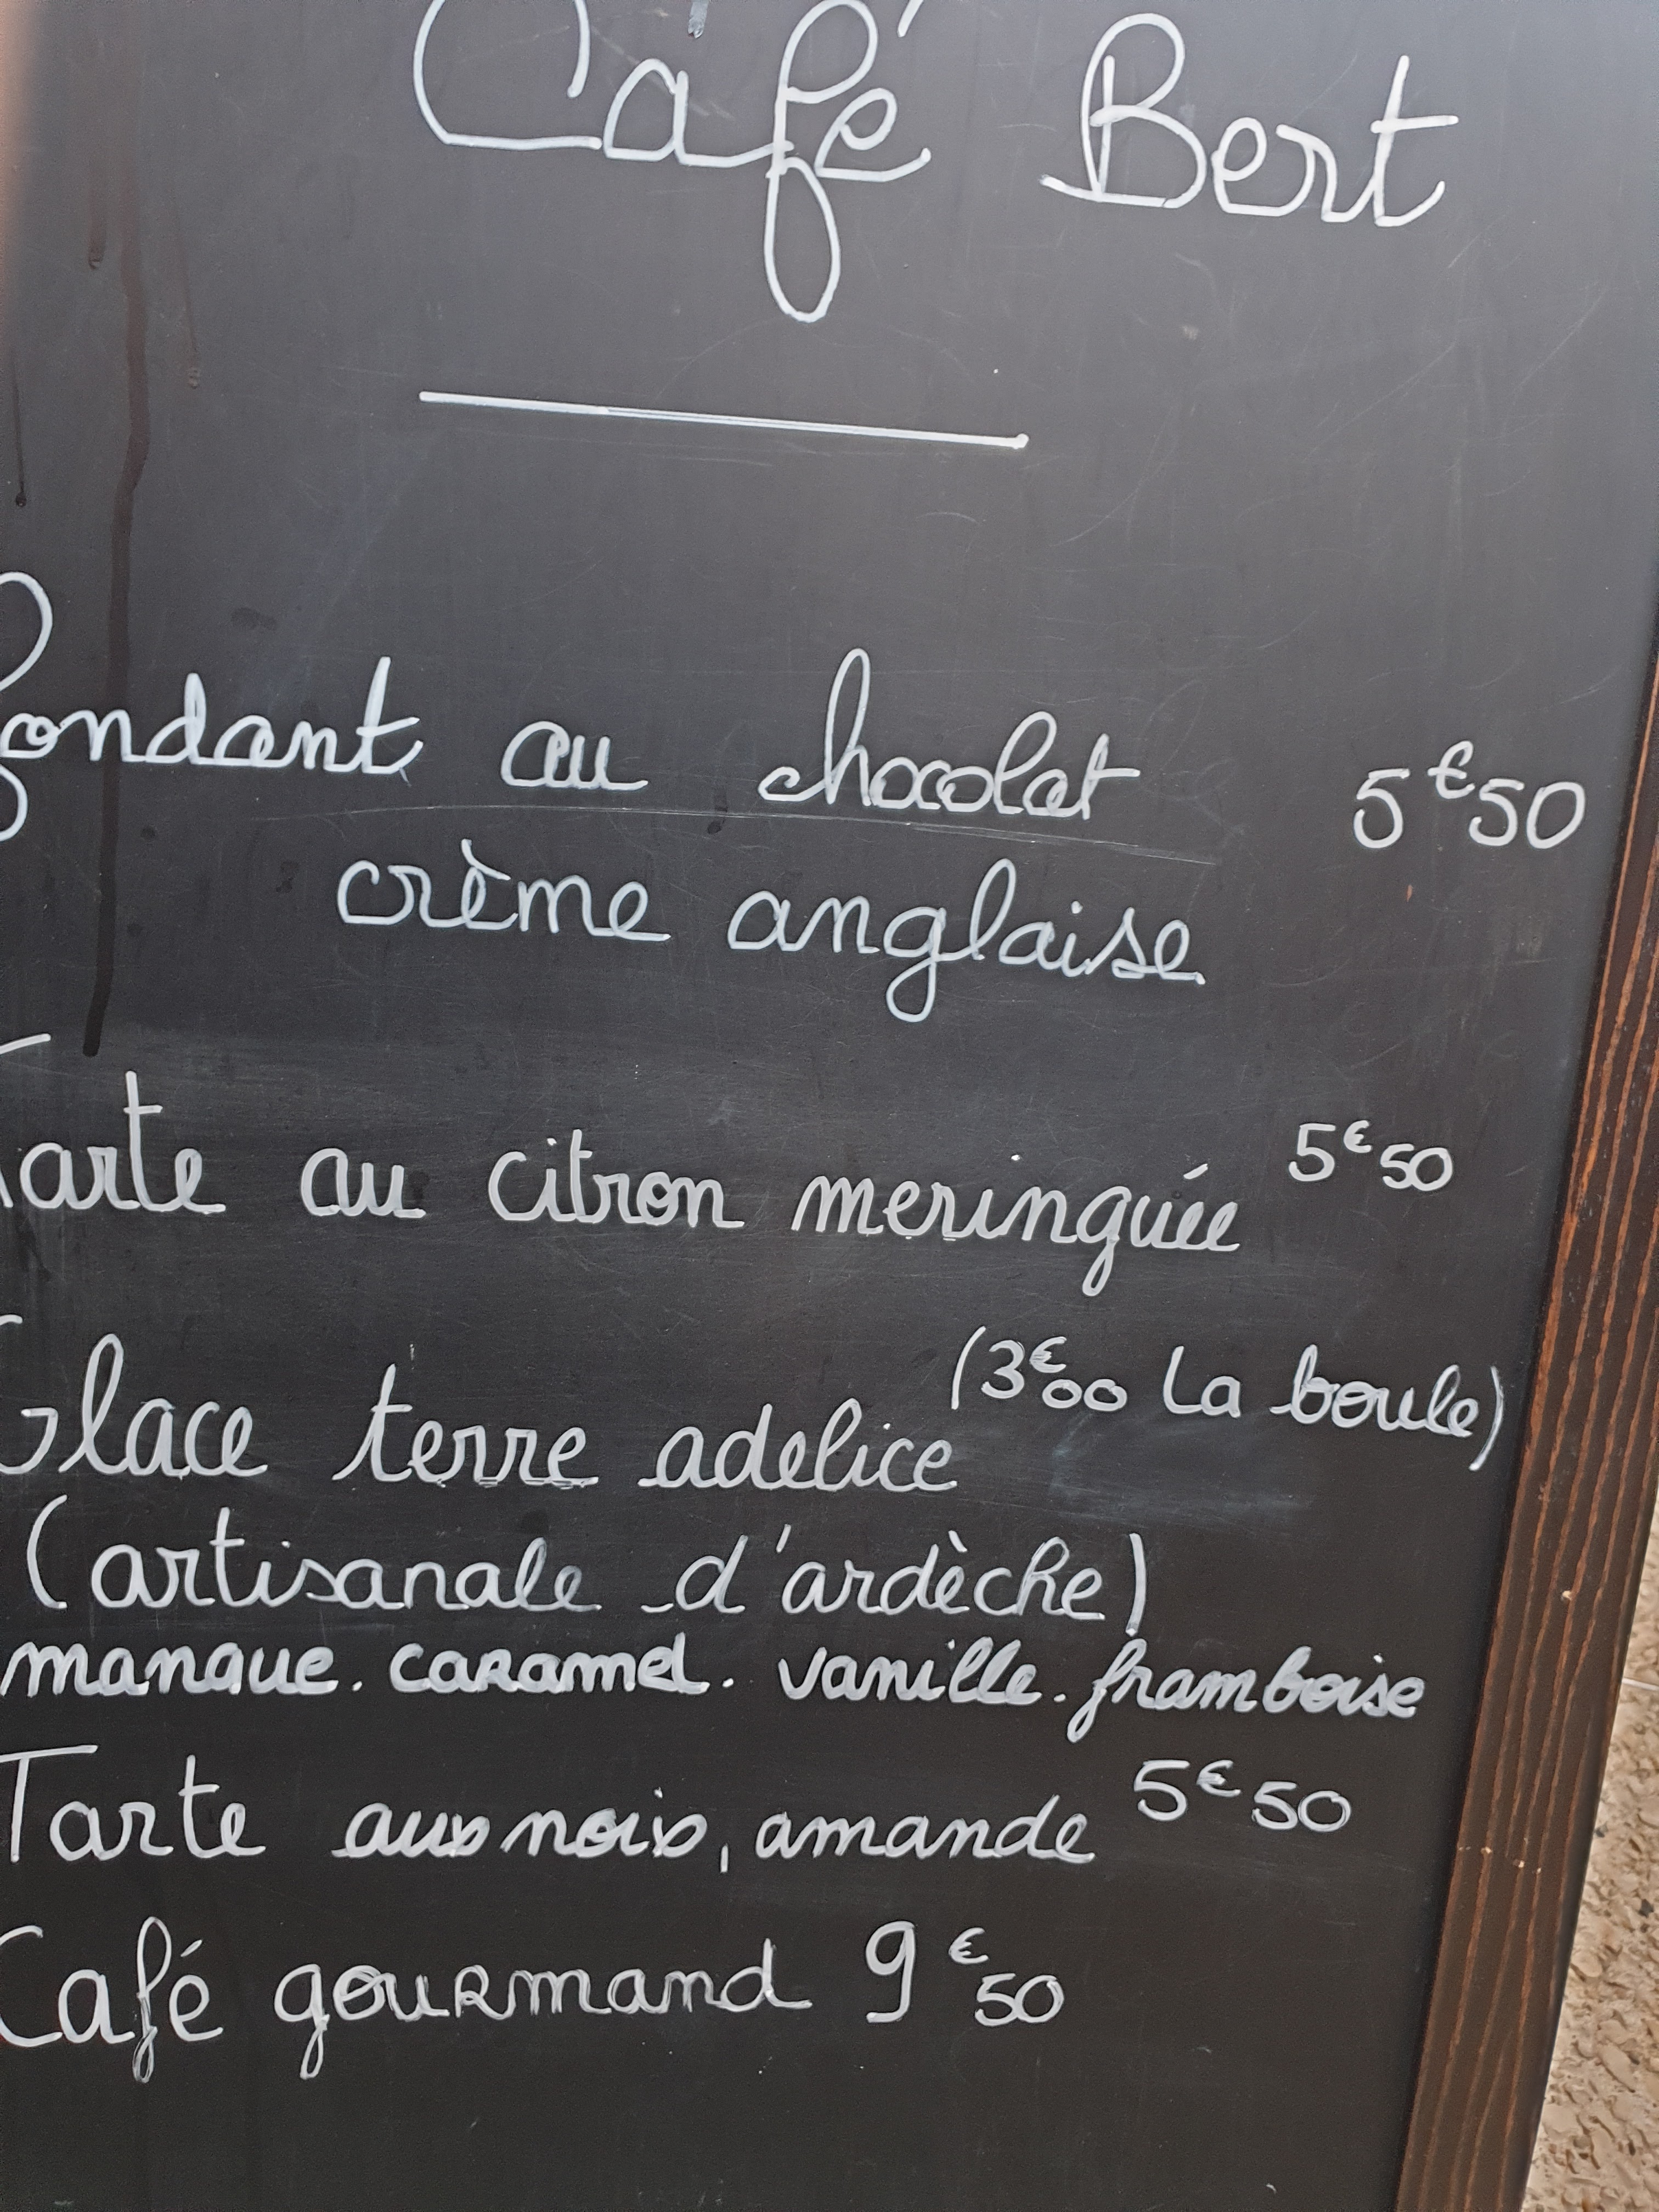 Café Bert
Fondant au chocolat 5€50
crème anglaise
Tarte au citron meringuée 5€50
Glace terre adelice (3€00 la boule)
(artisanale d'ardèche)
mangue. caramel. vanille. framboise
Tarte aux noix, amande 5€50
Café gourmand 9€50